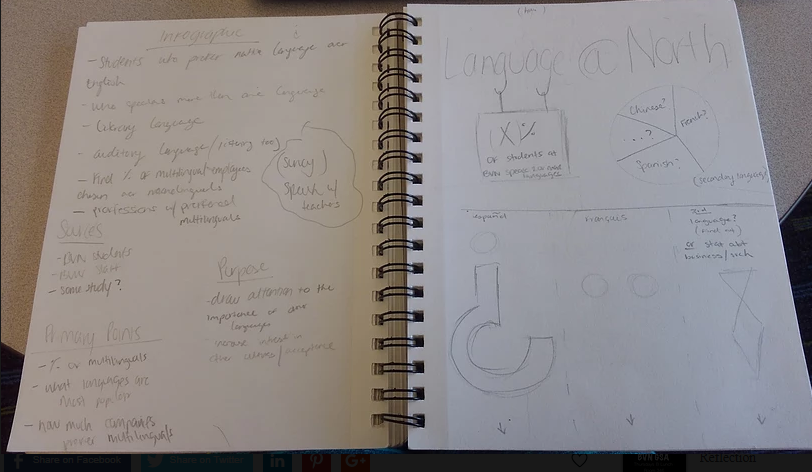 Infographic
- Students who prefer native language over
English
- Who speaks more than one language
- Literary language
- auditory language/(listening too)
- Find % of multilingual employees
chosen over monolinguals
- professions w/ preferred
multilinguals
(survey)
speak w/
teachers
Sources
- BVN students
- BVN staff
- some study?
Purpose
- draw attention to the
importance of
languages
- increase interest in
other cultures/acceptance
Primary Points
- % of multilinguals
- what languages are
most popular
- how much companies
prefer multilinguals
Language @ North
X%
of students at
BVN speak 2 or more
languages
Chinese?
French?
...?
Spanish?
(secondary languages)
español
français
3rd
language?
(find out)
or stat abt
business/such
Share on Facebook
Share on Twitter
in
G+
Reflection